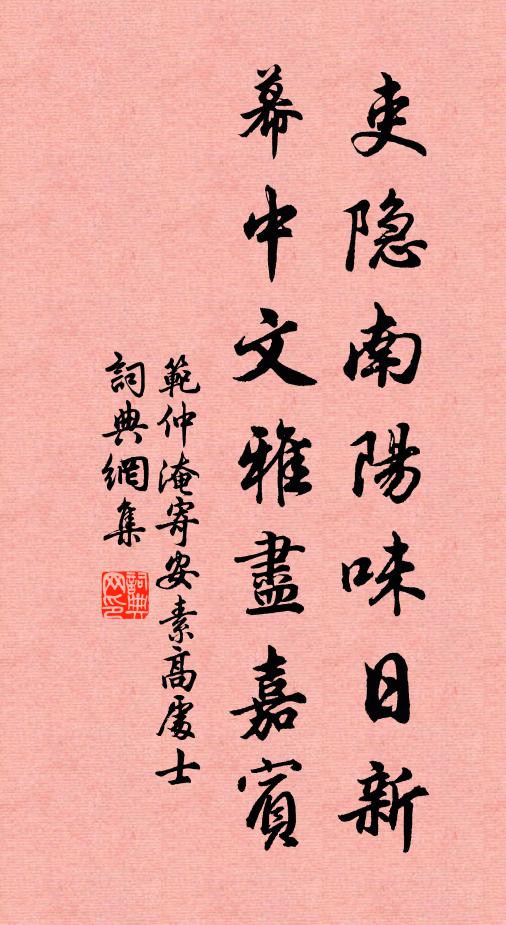 吏隐南陽味日新
幕中文雅盡嘉賓
範仲淹寄安素高處士
詞典網集
詞典網印